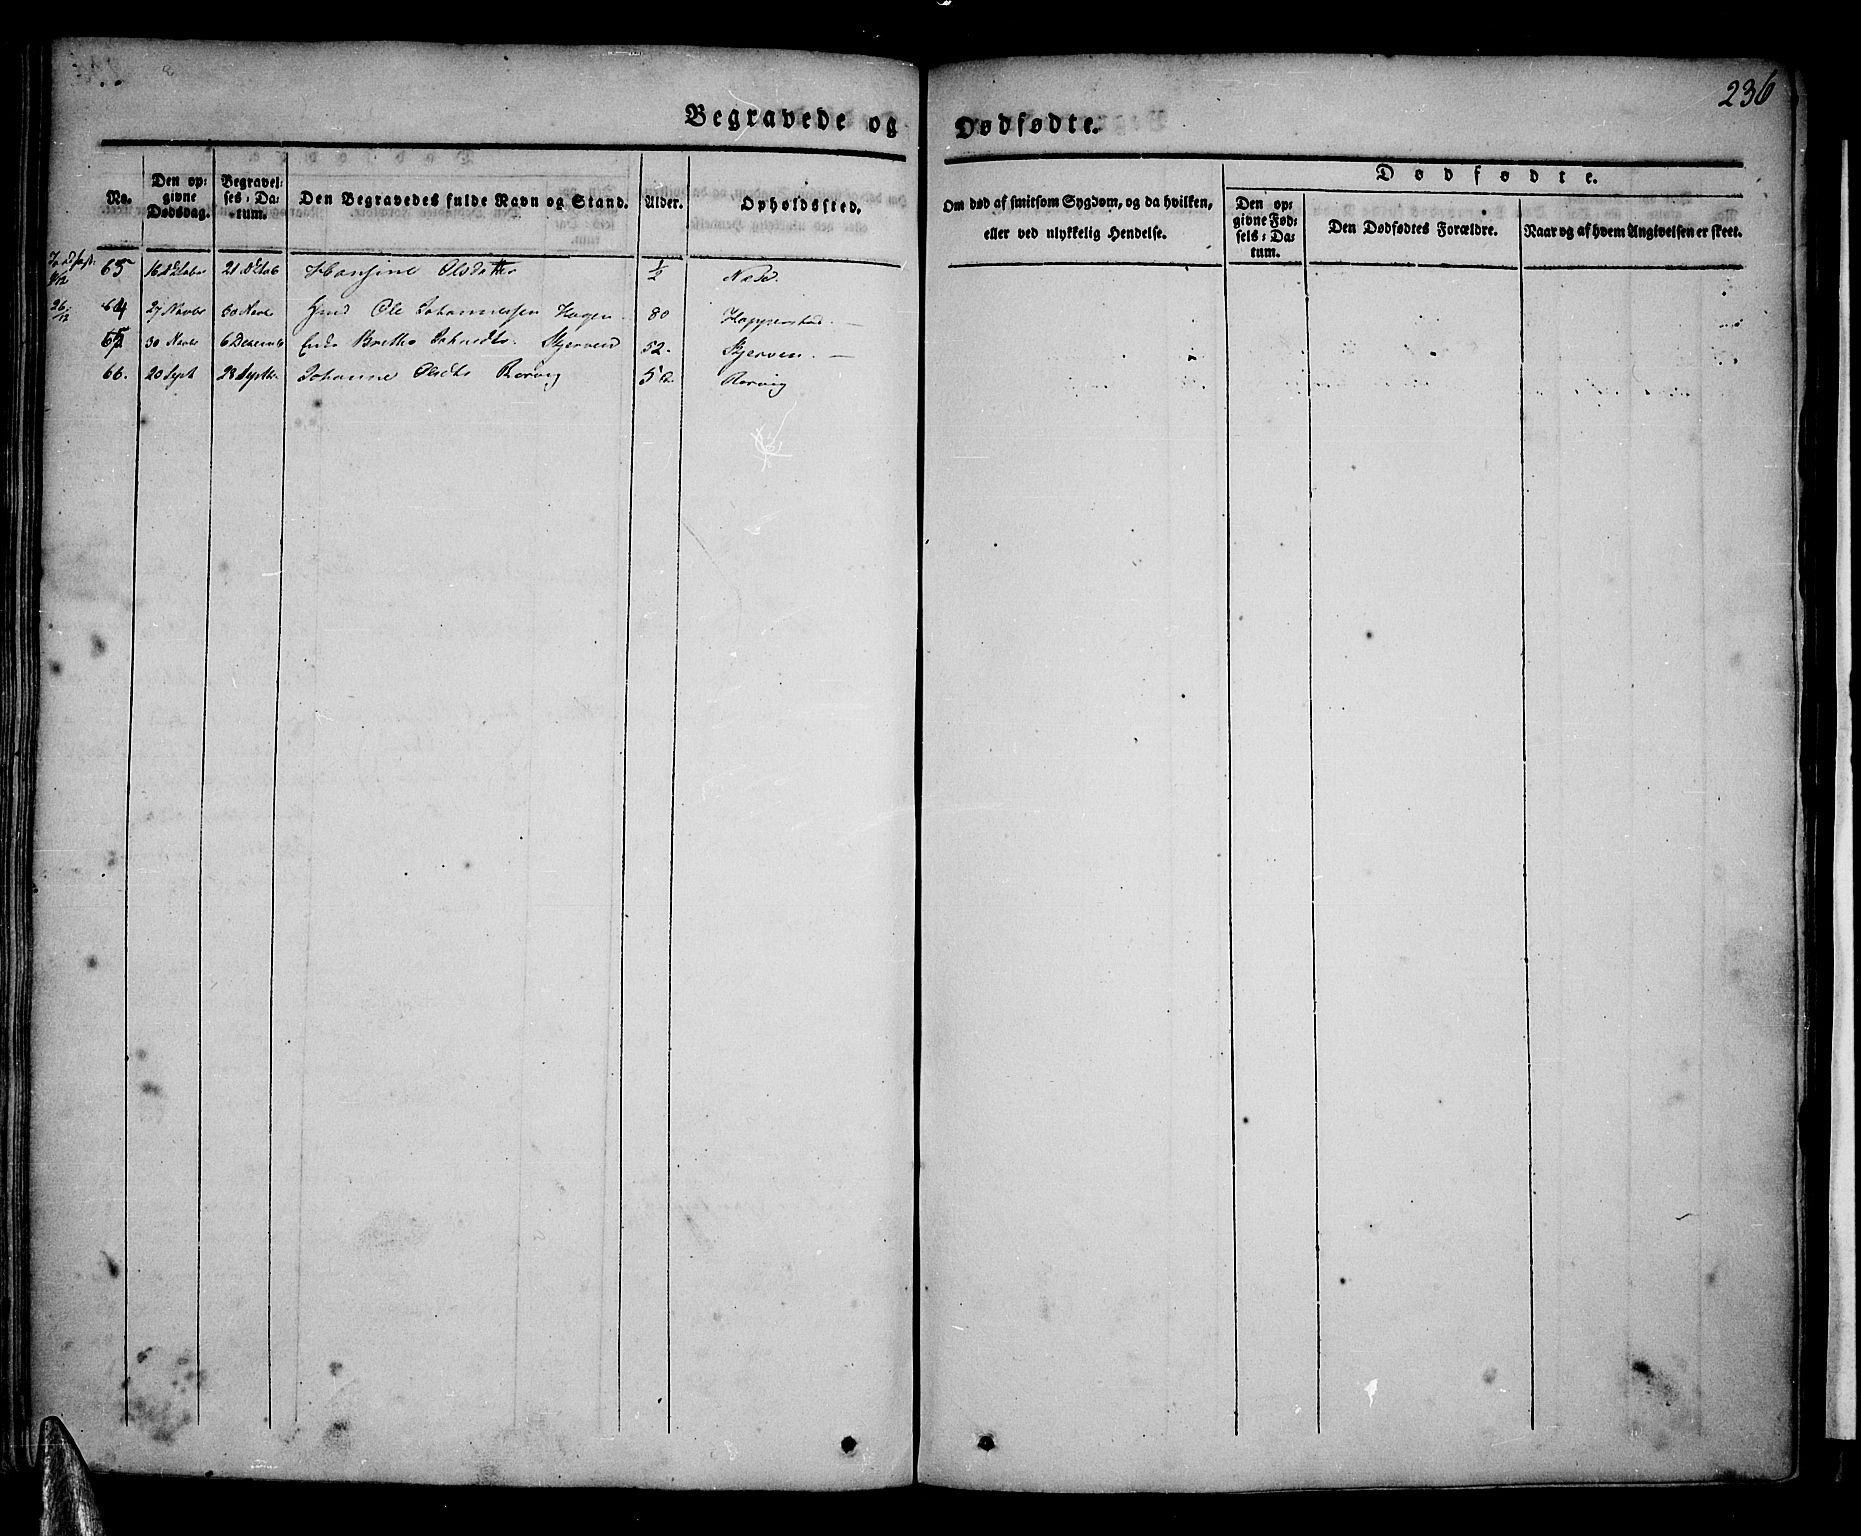 236
Begravede og Dødfødte.
No. Den opgivne Dødsdag. Begravelses-Datum. Den Begravedes fulde Navn og Stand. Alder. Opholdssted. Om død af smitsom Sygdom, og da hvilken, eller ved ulykkelig Hendelse. Dødfødte. Den opgivne Fødsels-Datum. Den Dødfødtes Forældre. Naar og af hvem Angivelsen er skeet.
16 21 Hansine Olsdatter ½
26/12 64 27 Novbr 30 Novbr Gmd Ole Johannessen Hagen 80 Hopperstad
65 30 Novbr 6 Decemb Enke Brethe Skjerven 52. Skjerven.
66. 20 Sept 28 Septbr Johanne Olsdtr Rorvig Rorvig